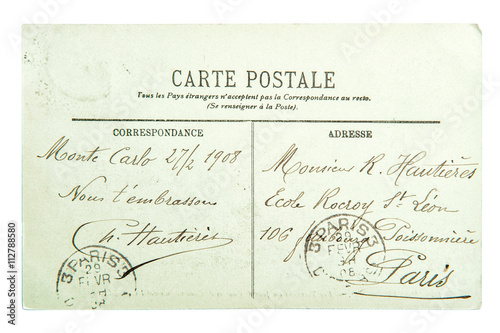 CARTE POSTALE
Tous les Pays étrangers n'acceptent pas la Correspondance au recto.
(Se renseigner à la Poste).
CORRESPONDANCE
ADRESSE
Monte Carlo 27/2 1908
Nous t'embrassons
Ch. Hautières
Monsieur R. Hautières
Ecole Rocroy St Léon
106 faubourg Poissonnière
Paris
3 PARIS 3
29
FEVR
3 PARIS 3
29
FEVR
08
Adobe Stock
#112788580